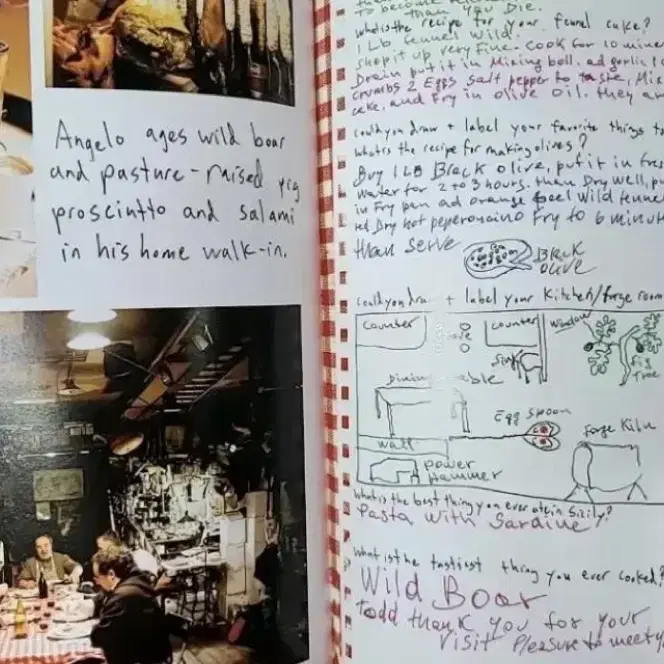 Angelo ages wild boar
and pasture-raised pig
prosciutto and salami
in his home walk-in.
than You Die.
whatis the recipe for your fennel cake?
1 Lb fennel Wild
shop it up very Fine. Cook for 10 mine
Drain put it in Mixing boll. ad garlic 1 C
Crumbs 2 Eggs salt pepper to taste, Mix
cake, and Fry in olive oil. they ar
couldyou draw + label your favorite things to
whats the recipe for making olives?
Buy 1 LB Black olive, put it in fres
water for 2 to 3 hours. than Dry well, pu
in Fry pan ad orange peel Wild fennel
red Dry hot peperoncino Fry to 6 minut
than serve
Black
olive
couldyou draw + label your Kitchen/forge room
counter
counter
window
Sink
Fig
Tree
Dining table
Egg Spoon
Forge Kiln
wall
power
hammer
whatis the best thing you ever ate in Sicily?
Pasta with Sardine
what is the tastiest thing you ever cooked?
Wild Boar
todd thank you for your
visit Pleasure to meet y